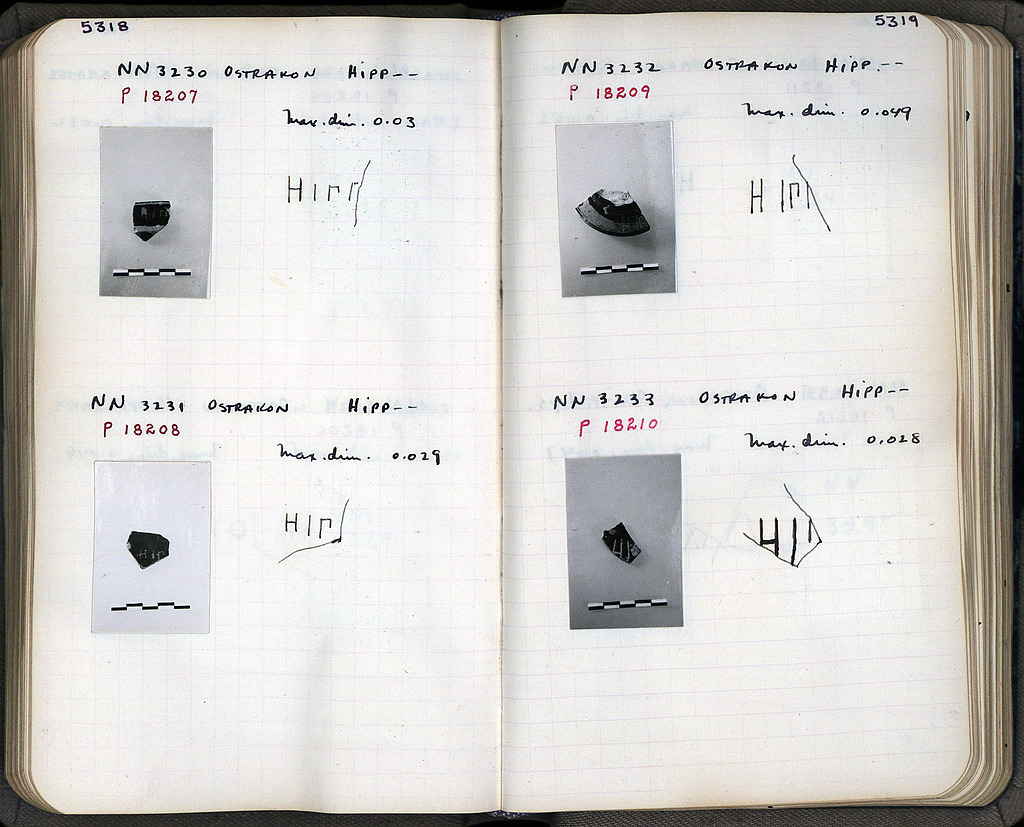 5318
NN 3230 OSTRAKON HIPP--
P 18207
Max. dim. 0.03
ΗΙΓΓ
NN 3231 OSTRAKON HIPP--
P 18208
Max. dim. 0.029
ΗΙΓ
5319
NN 3232 OSTRAKON HIPP.--
P 18209
Max. dim. 0.049
ΗΙΓΙ
NN 3233 OSTRAKON HIPP--
P 18210
Max. dim. 0.028
ΗΙΓ